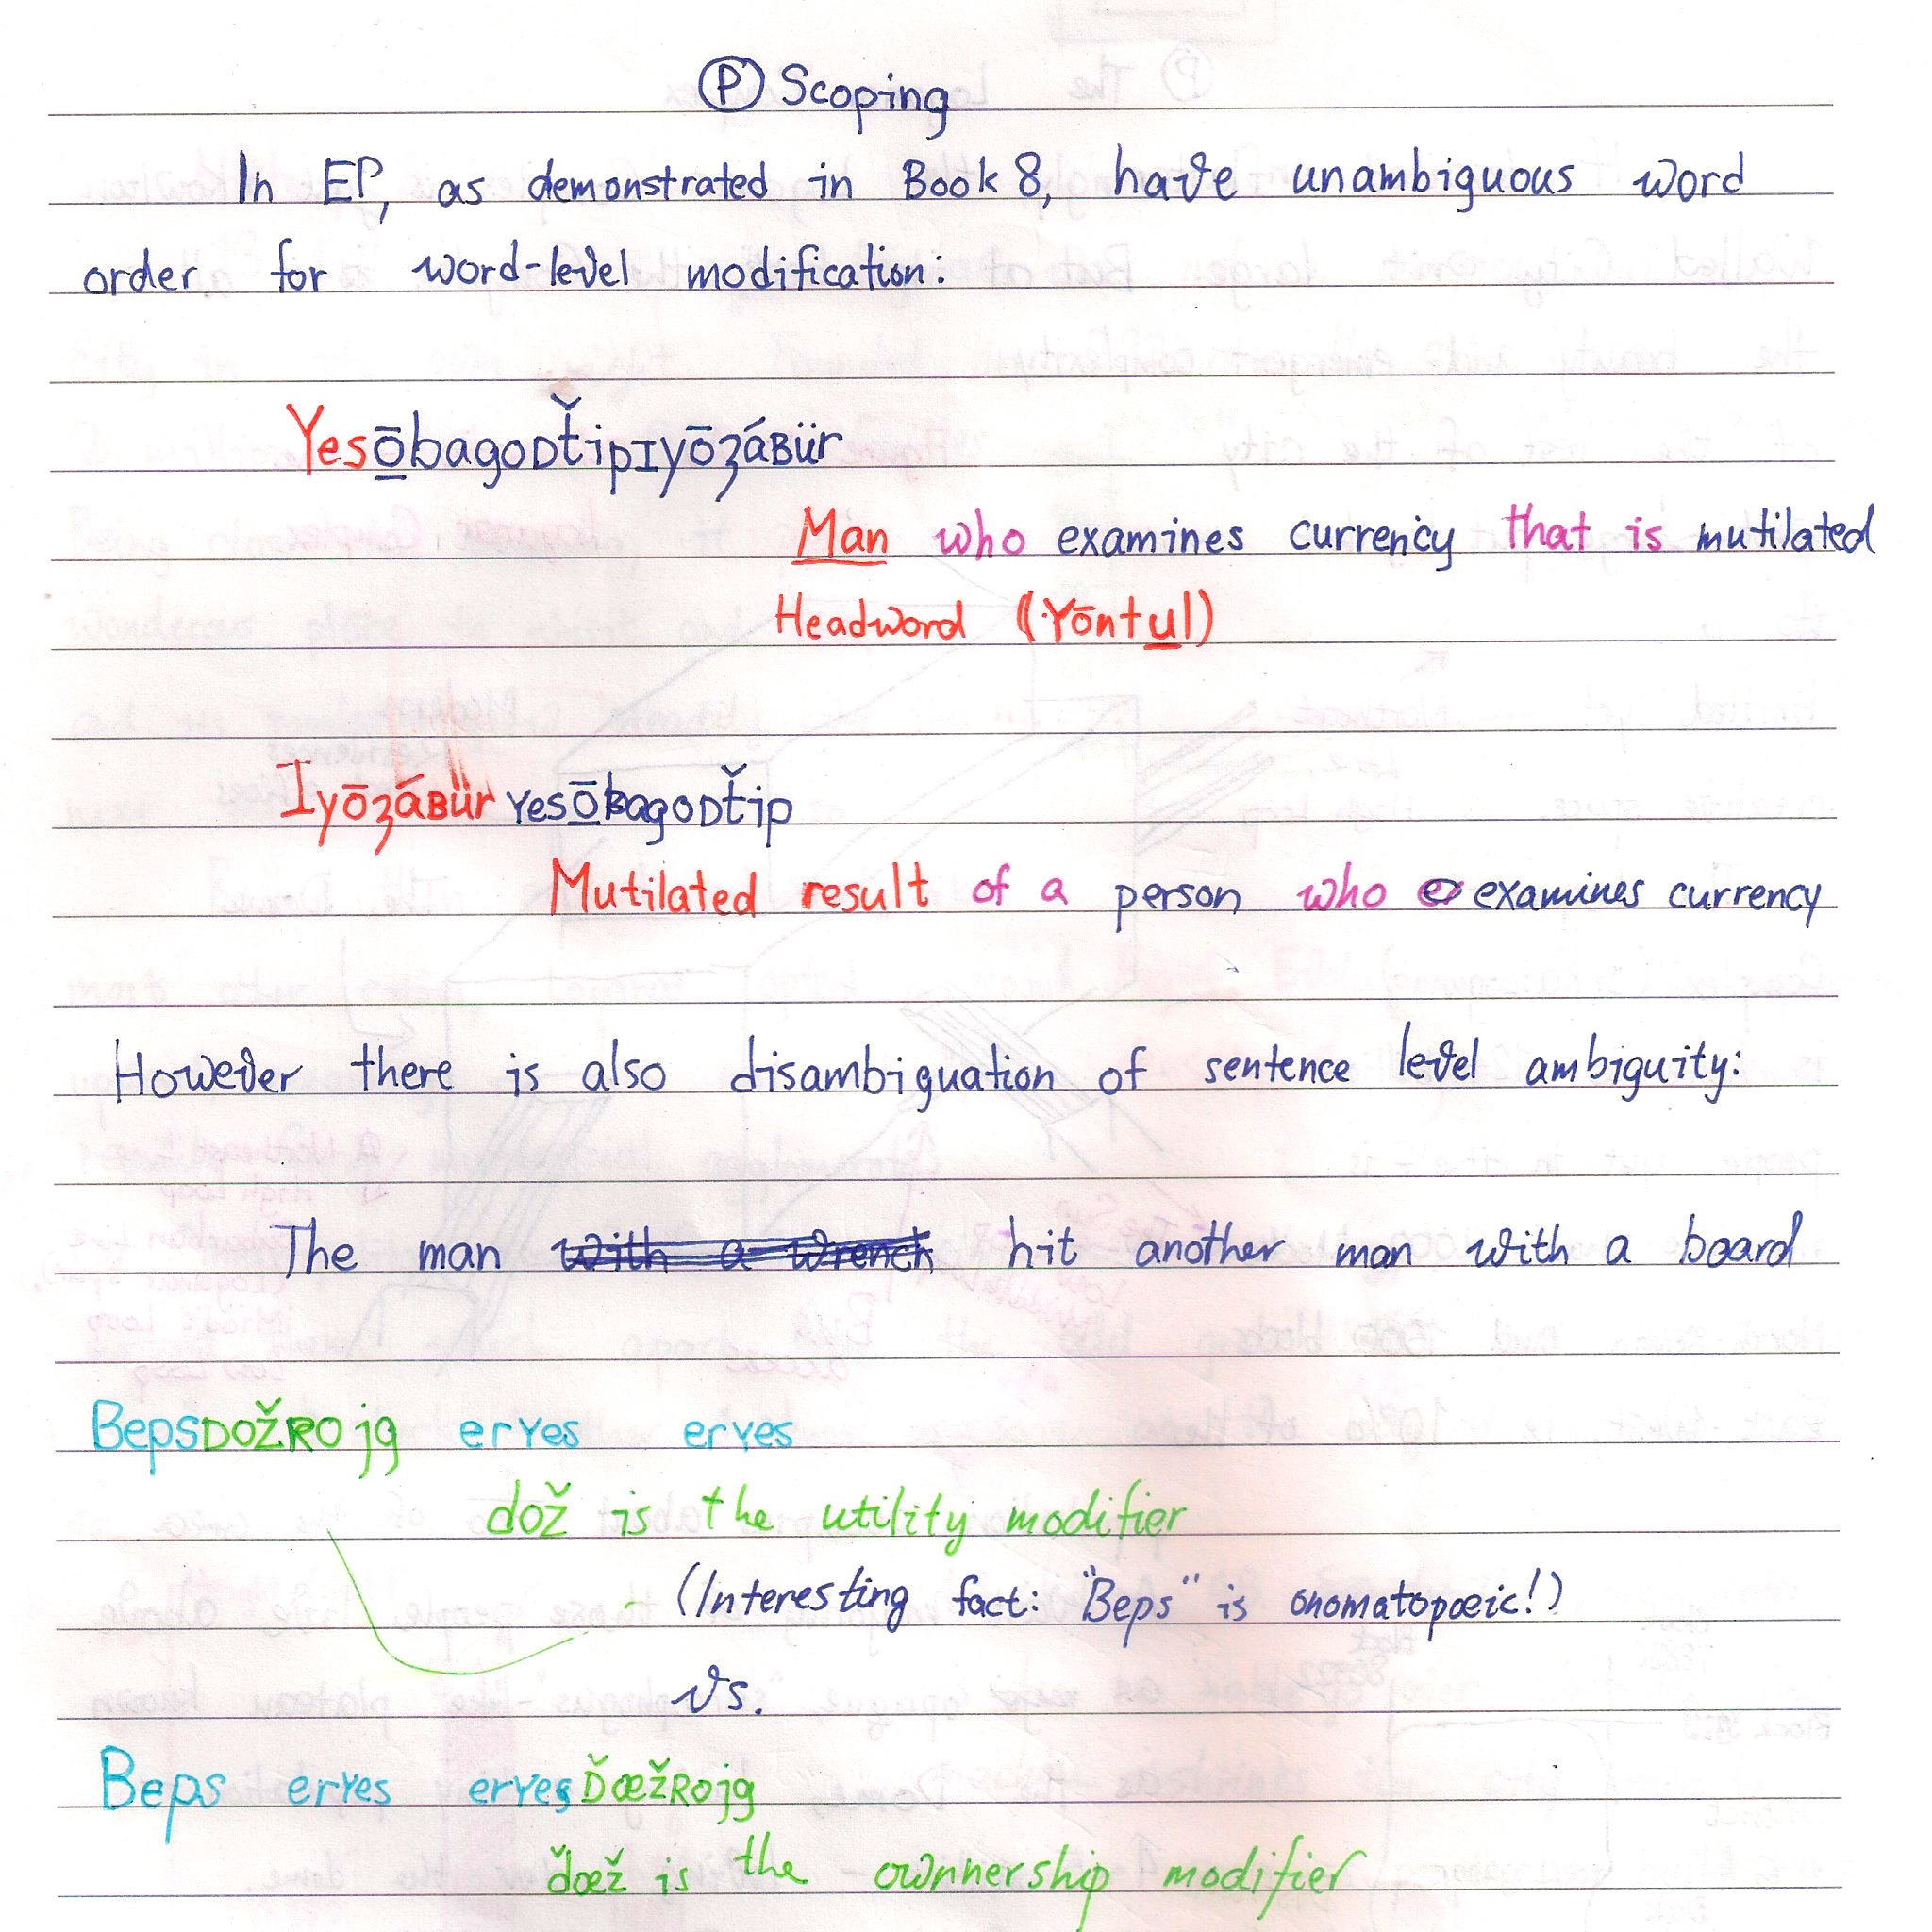 Ⓟ Scoping
In EP, as demonstrated in Book 8, have unambiguous word
order for word-level modification:
YesōbagoDťipIyōʒáBür
Man who examines currency that is mutilated
Headword (Yōntul)
IyōʒáBür YesōbagoDťip
Mutilated result of a person who examines currency
However there is also disambiguation of sentence level ambiguity:
The man with a wrench hit another man with a board
BepsDOŽROjg erYes erYes
dož is the utility modifier
(Interesting fact: "Beps" is onomatopœic!)
vs.
Beps erYes erYesĎœžROjg
ďœž is the ownnership modifier